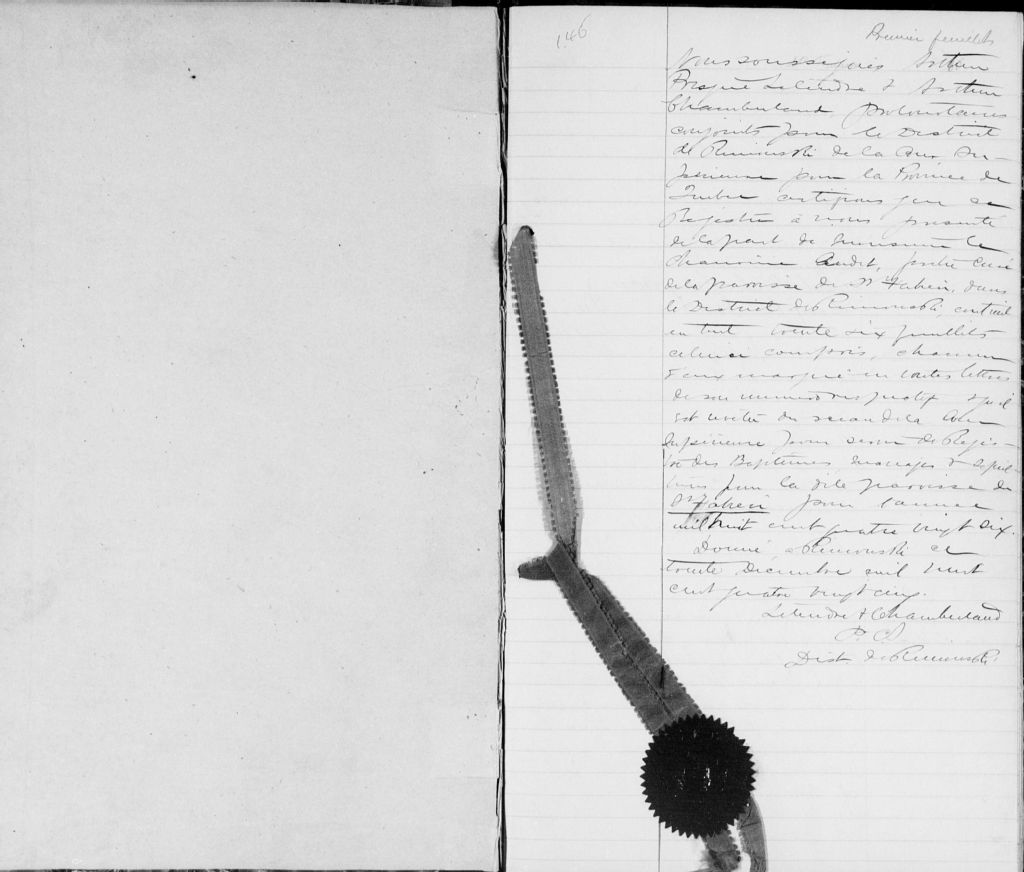 146
Premier feuillet
Nous soussignés Arthur
Letendre & Arthur
Chamberland, Protonotaires
conjoints pour le District
de Rimouski de la Cour Su-
périeure pour la Province de
Québec certifions que ce
Régistre à nous présenté
de la part de Monsieur le
Chanoine Audet, prêtre curé
de la paroisse de St Fabien, dans
le District de Rimouski, contient
en tout trente six feuillets
celui-ci compris, chacun
d'eux marqué en toutes lettres
de son numéro respectif & qu'il
est revêtu du sceau de la Cour
Supérieure pour servir de Régis-
tre des Baptêmes, mariages & sépul-
tures pour la dite paroisse de
St Fabien pour l'année
mil huit cent quatre vingt six.
Donné à Rimouski ce
trente Décembre mil huit
cent quatre vingt cinq.
Letendre & Chamberland
P. C. S.
Dist. de Rimouski.